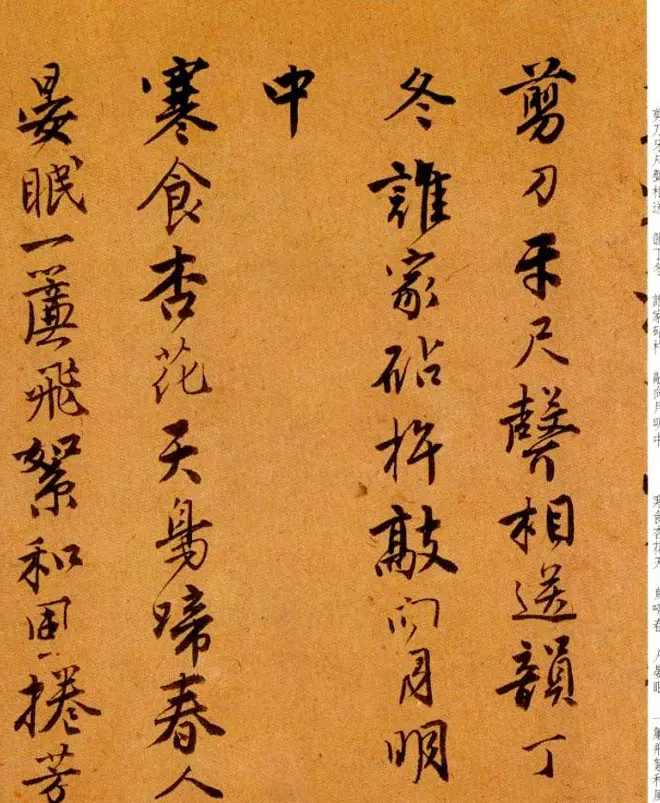 剪刀牙尺聲相送韻丁
冬誰家砧杵敲向月明
中
寒食杏花天鳥啼春人
晏眠一簾飛絮和風捲芳